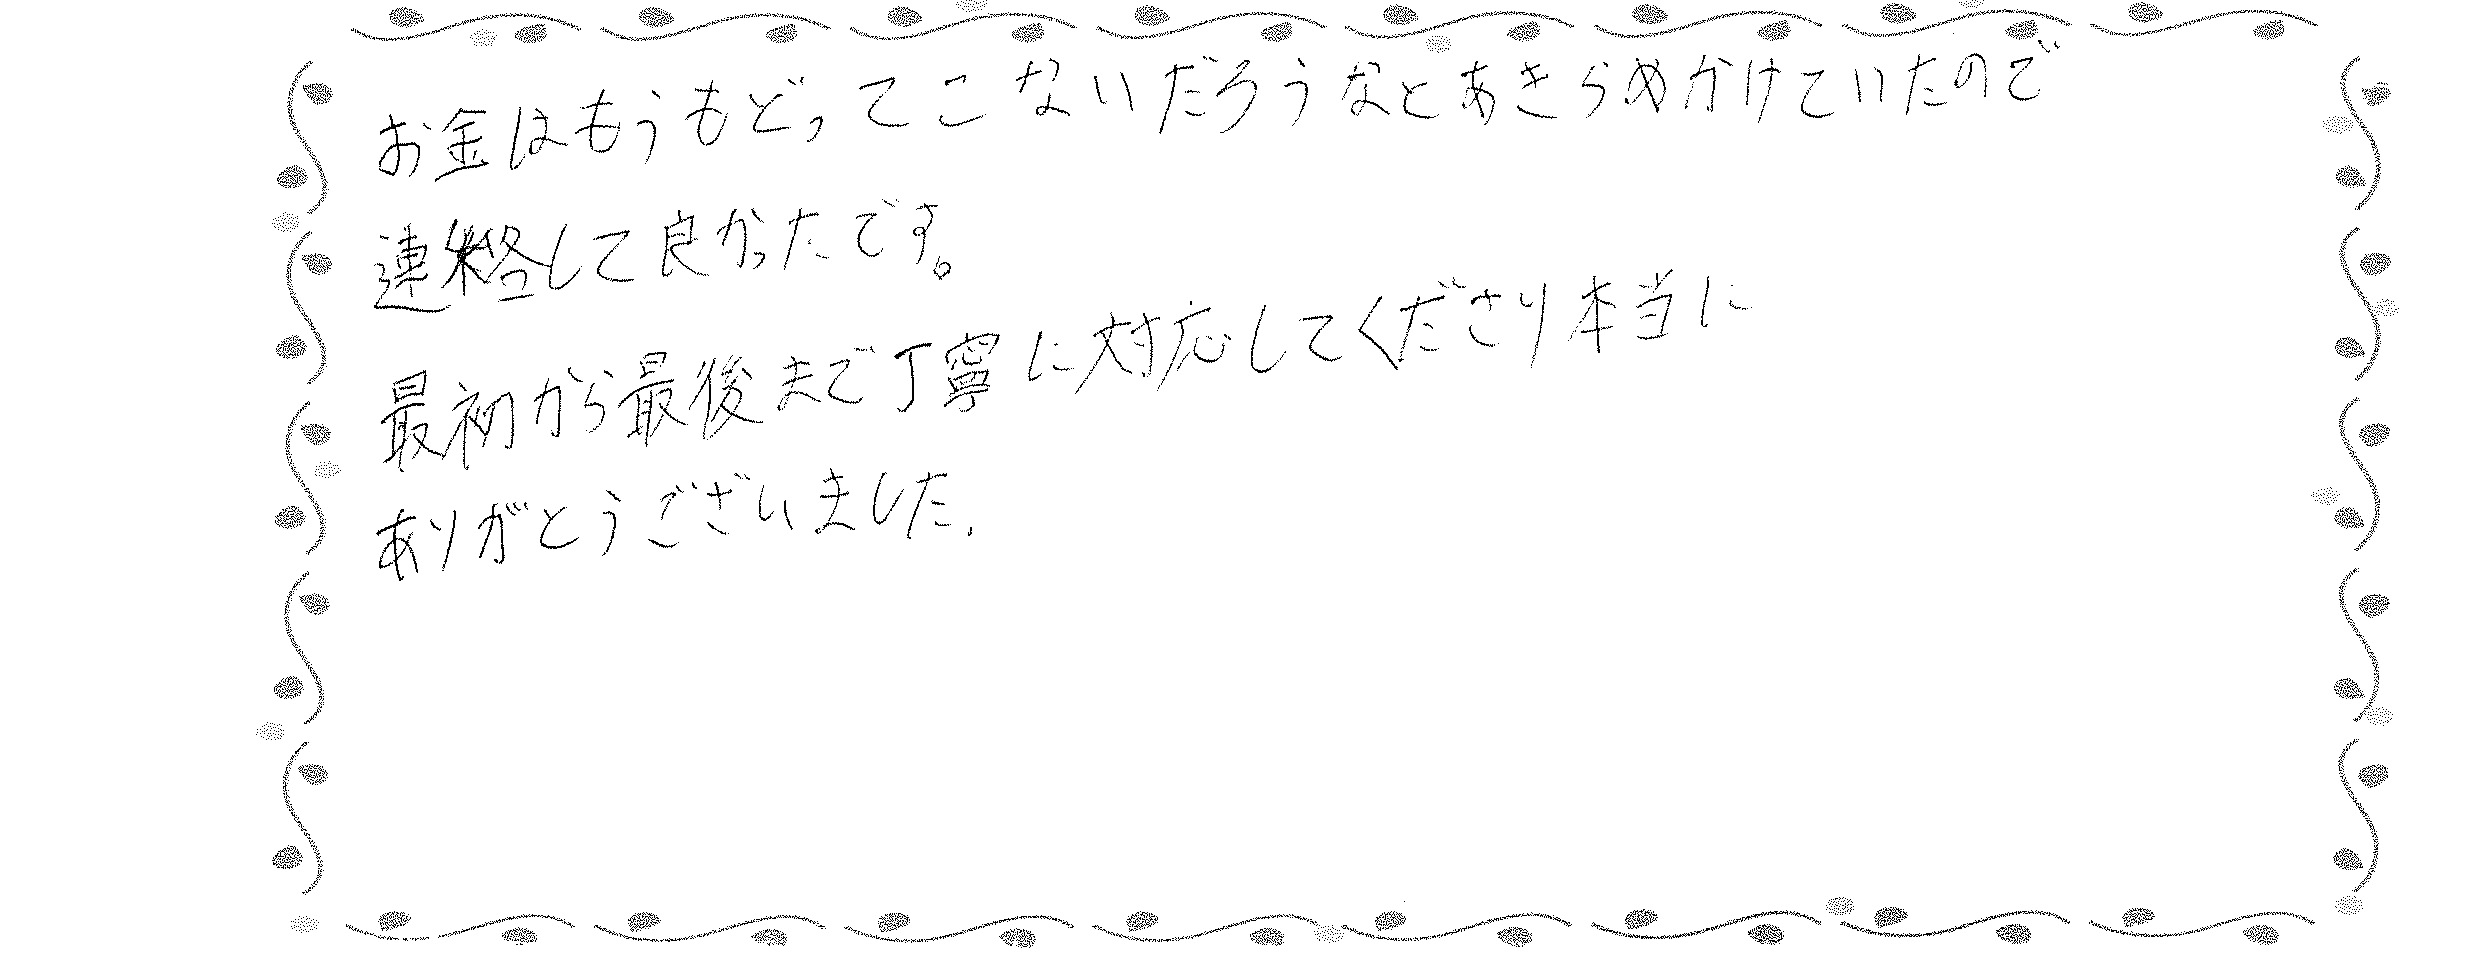 お金はもうもどってこないだろうなとあきらめかけていたので
連絡して良かったです。
最初から最後まで丁寧に対応してくださり本当に
ありがとうございました.